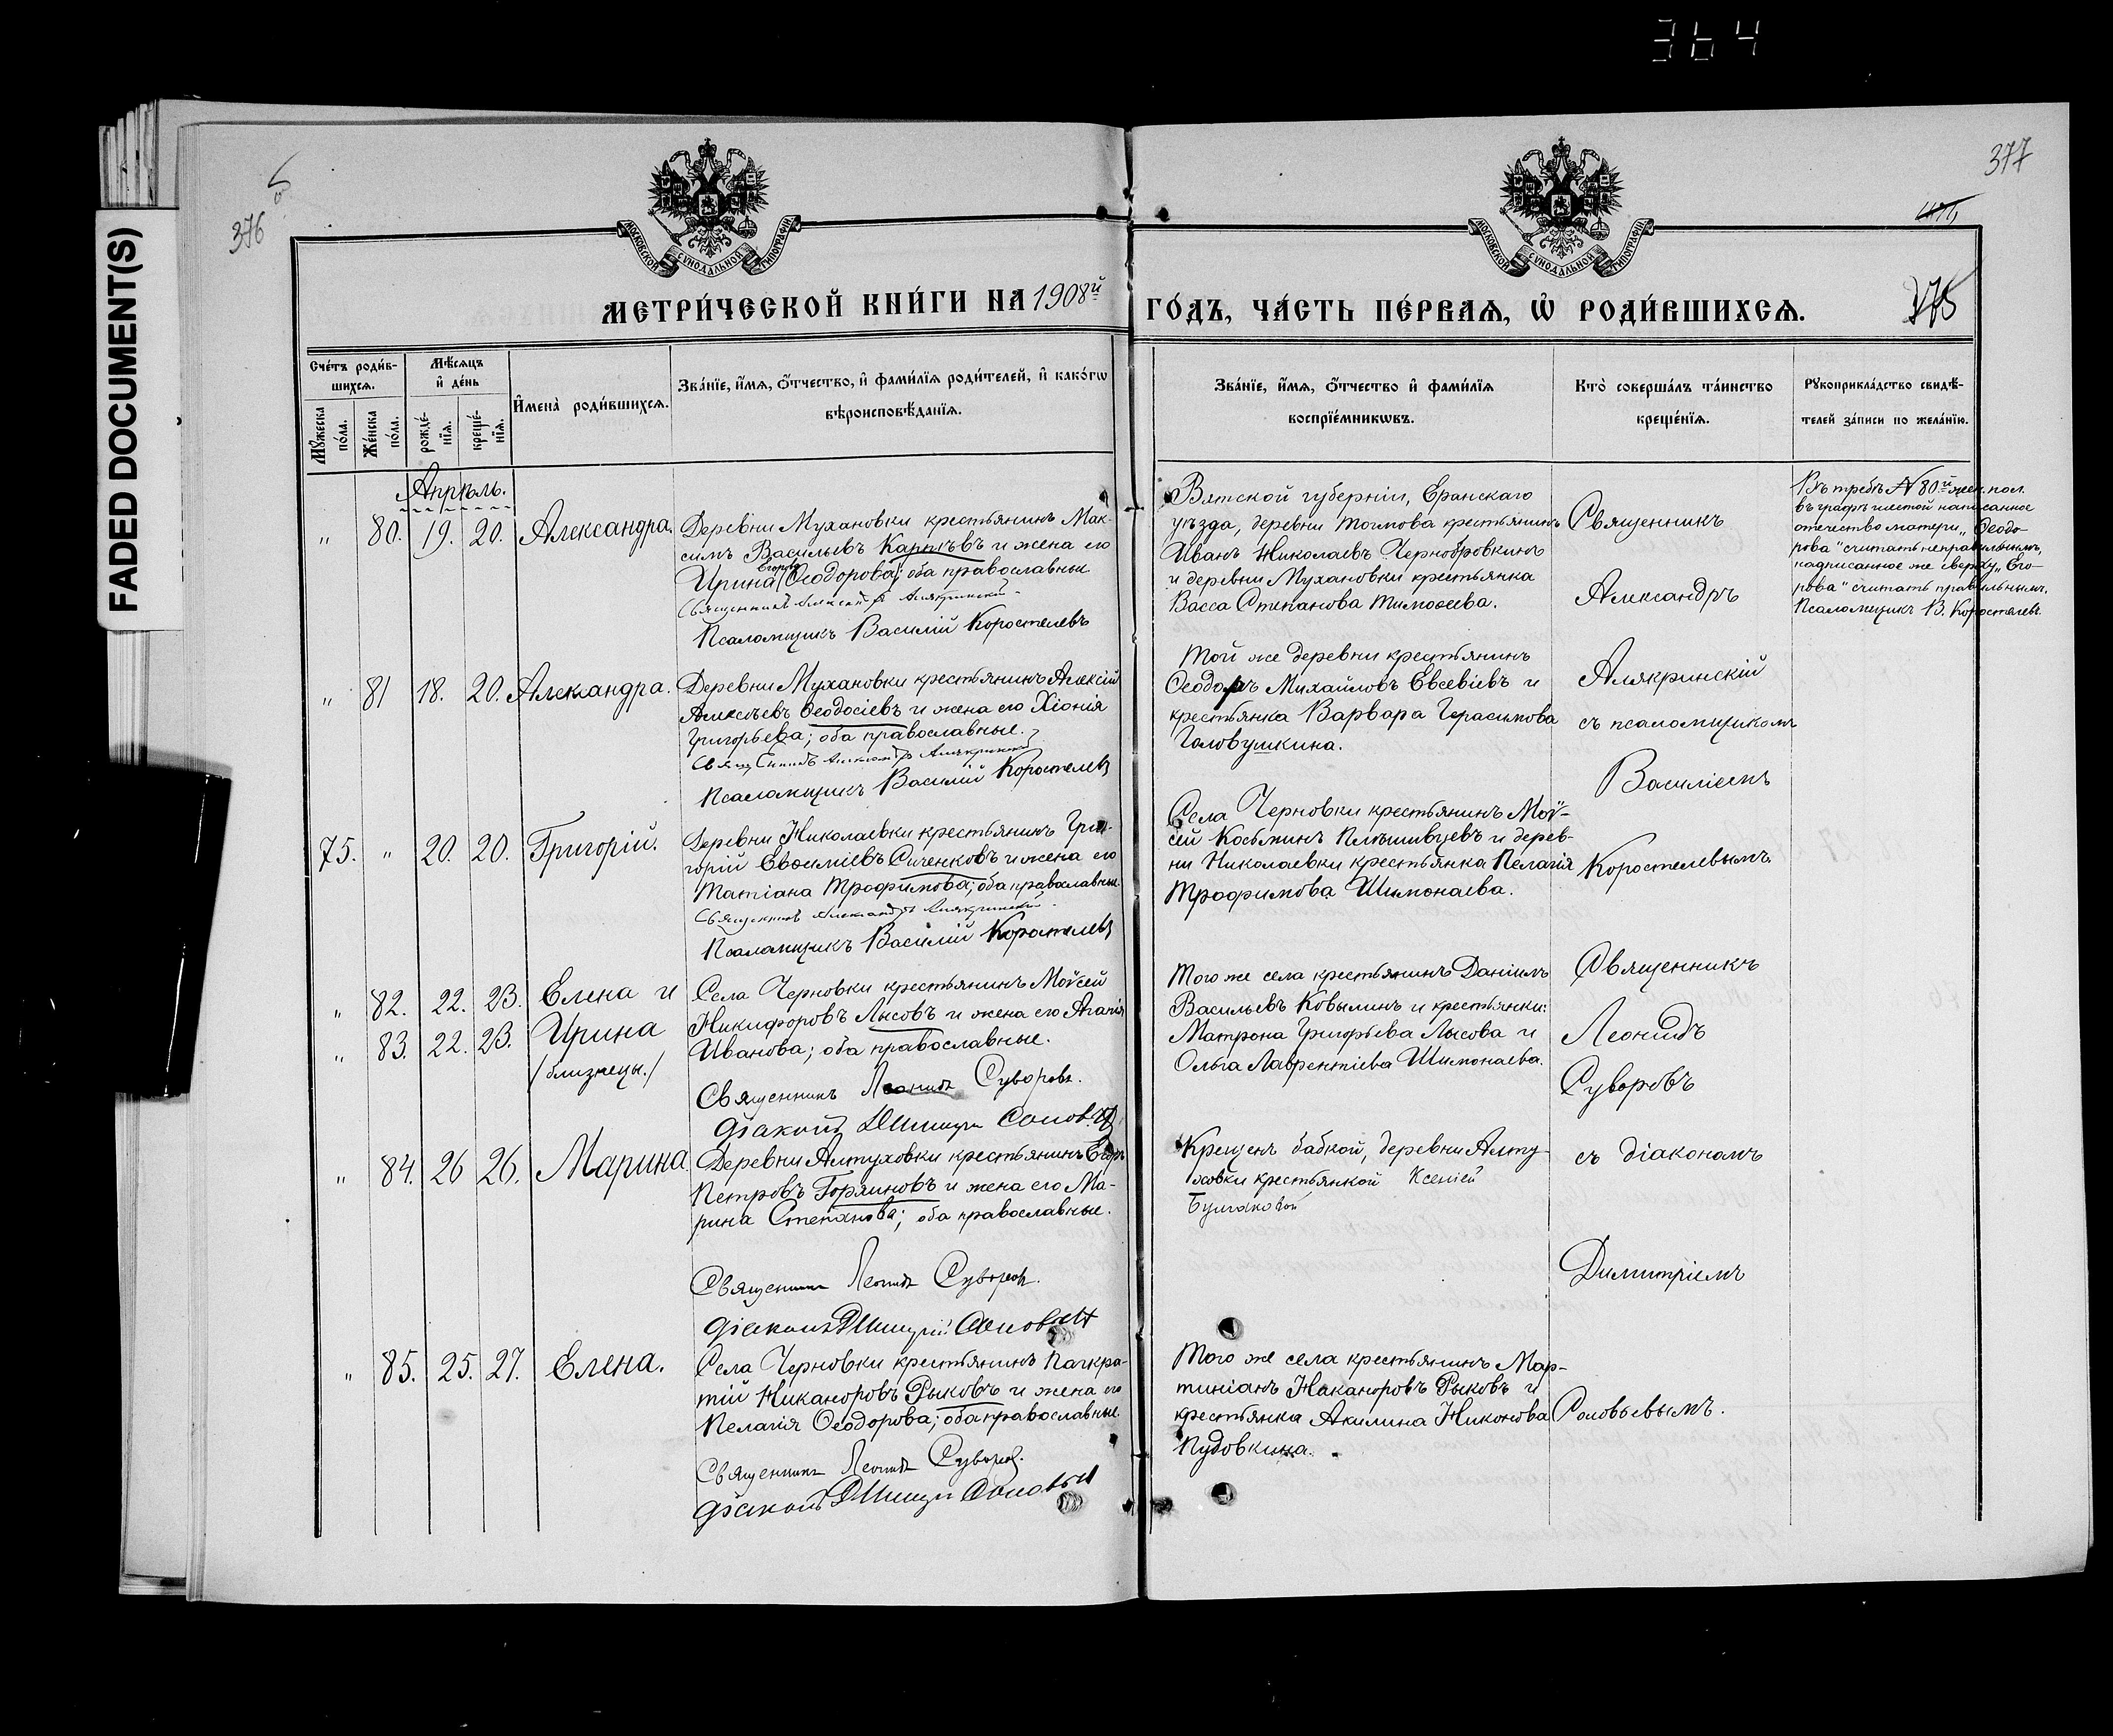 364
FADED DOCUMENT(S)
376
377
375
МОСКОВСКОЙ СѴНОДАЛЬНОЙ ТИПОГРАФІИ
МОСКОВСКОЙ СѴНОДАЛЬНОЙ ТИПОГРАФІИ
МЕТРИ́ЧЕСКОЙ КНИ́ГИ НА 1908й ГО́ДЪ, ЧА́СТЬ ПЕ́РВАѦ, Ѡ҆ РОДИ́ВШИХСѦ.
Сче́тъ роди́в-
шихсѧ.
Мꙋ́жеска
по́ла.
Же́нска
по́ла.
Мѣ́сѧцъ
и҆ де́нь
рожде́-
нїѧ.
креще́-
нїѧ.
И҆мена̀ роди́вшихсѧ.
Зва́нїе, и҆́мѧ, ѻ҆́тчество, и҆ фами́лїѧ роди́телей, и҆ како́гѡ
вѣроисповѣ́данїѧ.
Зва́нїе, и҆́мѧ, ѻ҆́тчество и҆ фами́лїѧ
воспрїе́мникѡвъ.
Кто̀ соверша́лъ та́инство
креще́нїѧ.
Рꙋкоприкла́дство свидѣ́-
телей за́писи по жела́нїю.
Апрѣль.
" 80. 19. 20. Александра.
Деревни Мухановки крестьянинъ Мак-
симъ Васильевъ Карпѣевъ и жена его
Егорова
Ирина Ѳеодорова; оба православны
Священникъ Александръ Алякринскій
Псаломщикъ Василій Коростелевъ
Вятской губерніи, Еранскаго
уѣзда, деревни крестьянинъ
Иванъ Николаевъ Чернобровкинъ
и деревни Мухановки крестьянка
Васса Степанова Тимоѳеева.
Священникъ
Александръ
Въ требѣ № 80й жен. пол.
въ графѣ шестой написанное
отечество матери „Ѳеодо-
рова" считать неправильнымъ,
надписанное же сверху „Его-
рова" считать правильнымъ.
Псаломщикъ В. Коростелевъ.
" 81 18. 20. Александра.
Деревни Мухановки крестьянинъ Алексій
Алексѣевъ Ѳеодосіевъ и жена его Хіонія
Григорьева; оба православные.
Священникъ Александръ Алякринскій
Псаломщикъ Василій Коростелевъ
Той же деревни крестьянинъ
Ѳеодоръ Михайловъ Евсевіевъ и
крестьянка Варвара Герасимова
Головушкина.
Алякринскій
съ псаломщикомъ
Василіемъ
75. " 20. 20. Григорій.
Деревни Николаевки крестьянинъ Гри-
горій Евѳиміевъ Сиченковъ и жена его
Татіана Трофимова; оба православные.
Священникъ Александръ Алякринскій
Псаломщикъ Василій Коростелевъ
Села Черновки крестьянинъ Мой-
сей Косьминъ Плѣшивцевъ и дерев-
ни Николаевки крестьянка Пелагія
Трофимова Шимонаева.
Коростелевымъ
" 82. 22. 23. Елена и
" 83. 22. 23. Ирина
/близнецы./
Села Черновки крестьянинъ Мойсей
Никифоровъ Лысовъ и жена его Агапія
Иванова; оба православные.
Священникъ Леонидъ Суворовъ.
Діаконъ Димитрій Соловьевъ
Того же села крестьянинъ Даніилъ
Васильевъ Ковылинъ и крестьянки:
Матрона Григорьева Лысова и
Ольга Лаврентіева Шимонаева.
Священникъ
Леонидъ
Суворовъ
" 84. 26 26. Марина
Деревни Алтуховки крестьянинъ Егоръ
Петровъ Горяиновъ и жена его Ма-
рина Степанова; оба православные.
Священникъ Леонидъ Суворовъ.
Діаконъ Димитрій Соловьевъ
Крещенъ бабкой, деревни Алту-
ховки крестьянкой Ксеніей
Булгаковой
съ діакономъ
Димитріемъ
" 85. 25. 27. Елена.
Села Черновки крестьянинъ Панкра-
тій Никаноровъ Рыковъ и жена его
Пелагія Ѳеодорова; оба православные.
Священникъ Леонидъ Суворовъ.
Діаконъ Димитрій Соловьевъ
Того же села крестьянинъ Мар-
тиніанъ Наканоровъ Рыковъ и
крестьянка Акилина Никонова
Пудовкина.
Соловьевымъ.